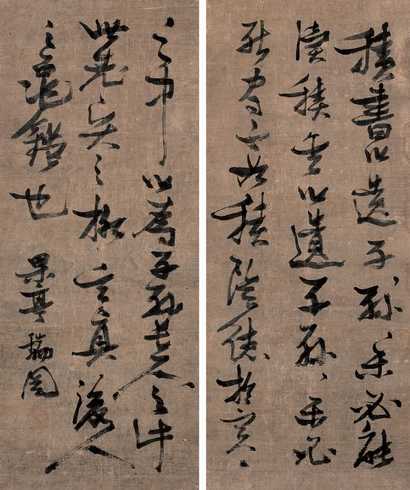 積書以遺子孫未必能
讀積金以遺子孫未必
能守不如積陰德於冥冥
之中以為子孫長久之計
此先賢之格言真後人
之龜鑑也 果亭瑞圖